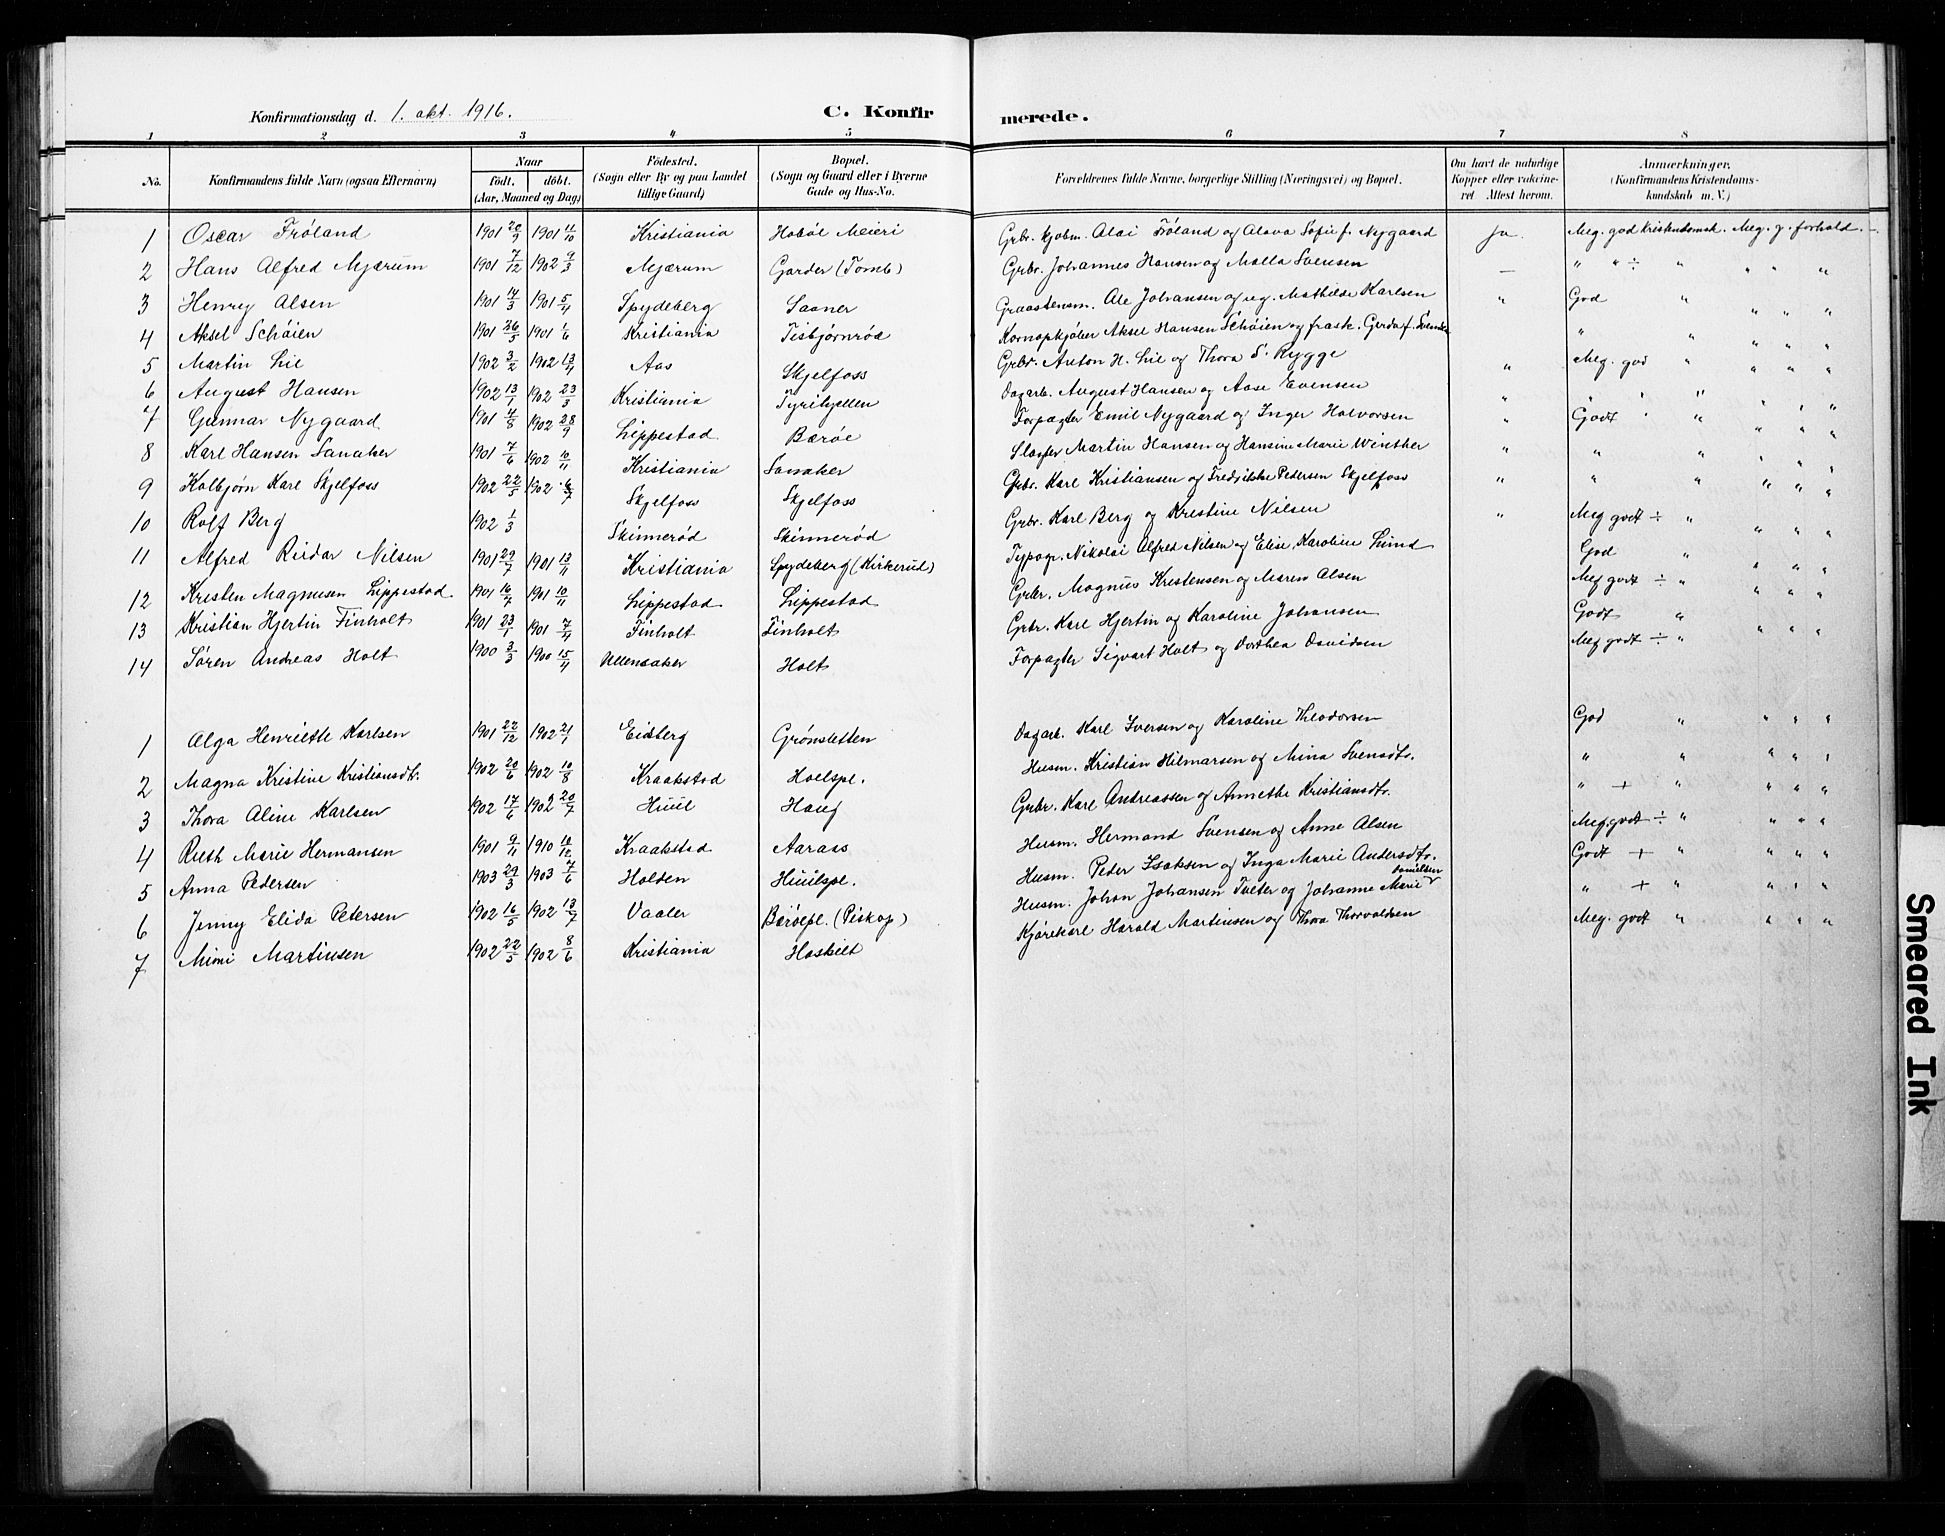 Konfirmationsdag d. 1. okt. 1916. C. Konfirmerede.
1 2 3 4 5 6 7 8
No. Konfirmandens fulde Navn (ogsaa Efternavn) Naar födt. döbt. (Aar, Maaned og Dag) Födested. (Sogn eller By og paa Landet tillige Gaard) Bopæl. (Sogn og Gaard eller i Byerne Gade og Hus-No. Forældrenes fulde Navne, borgerlige Stilling (Næringsvei) og Bopæl. Om havt de naturlige Kopper eller vakcineret Attest herom. Anmærkninger. (Konfirmandens Kristendomskundskab m. V.)
1 Oscar Fröland 1901 20/9 1901 11/10 Kristiania Hoböl Meieri Grbr. kjöbm. Olai Fröland og Olava Sofie f. Nygaard Ja. Meg. god Kristendomsk. Meg. g. forhold.
2 Hans Alfred Mjærum 1901 7/12 1902 9/3 Mjærum Garder (Tomb) Grbr. Johannes Hansen og Malla Svensen — " " ÷ " " " "
3 Henry Olsen 1901 14/3 1901 5/4 Spydeberg Saaner Graastensm. Ole Johansen og ug. Mathilde Karlsen " God " " " "
4 Aksel Schöien 1901 26/5 1901 1/6 Kristiania Tisbjørnrød Kornopkjøber Aksel Hansen Schöien og frask. Gerda f. " " " " "
5 Martin Lie 1902 3/2 1902 13/4 Aas Skjelfoss Grbr. Anton H. Lie og Thora S. Rygge " Meg. god " " " "
6 August Hansen 1902 13/1 1902 23/3 Kristiania Tyrihjellen Dagarb. August Hansen og Aase Evensen " " " " " "
7 Gunnar Nygaard 1901 4/8 1902 28/9 Lippestad Baröe Forpagter Emil Nygaard og Inger Halvorsen " Godt " " " " "
8 Karl Hansen Sanaker 1901 7/6 1902 10/11 Kristiania Sanaker Martin Hansen og Hansine Marie Winther " " " " " "
9 Kolbjørn Karl Skjelfoss 1902 22/5 1902 6/7 Skjelfoss Skjelfoss Grbr. Karl Kristiansen og Fredrikke Petersen Skjelfoss " " " " " "
10 Rolf Berg 1902 1/3 Skinnerød Skinnerød Grbr. Karl Berg og Kristine Nilsen " Meg godt ÷ " " " "
11 Alfred Reidar Nilsen 1901 29/7 1901 13/11 Kristiania Spydeberg (Kirkerud) Typogr. Nikolai Alfred Nilsen og Elise Karoline Lund God " " " "
12 Kristen Magnusen Lippestad 1901 16/7 1901 10/11 Lippestad Lippestad Grbr. Magnus Kristensen og Maren Olsen Meg godt ÷ " " " "
13 Kristian Hjertin Finholt 1901 23/1 1901 7/4 Finholt Finholt Grbr. Karl Hjertin og Karoline Johansen Godt " " " "
14 Sören Andreas Holt 1900 3/3 1900 15/4 Ullensaker Holt Forpagter Sigvart Holt og Dorthea Davidsen Meg godt ÷ "
1 Olga Henriette Karlsen 1901 22/12 1902 21/1 Eidsberg Grönsletten Dagarb. Karl Iversen og Karoline Theodorsen God " " " "
2 Magna Kristine Kristiansdtr. 1902 20/6 1902 10/8 Kraakstad Hoelspl. Husm. Kristian Hilmarsen og Mina Svensdtr. " " " " "
3 Thora Aline Karlsen 1902 17/6 1902 20/7 Huul Haug Grbr. Karl Andreassen og Annethe Kristiansdtr. " + " " " "
4 Ruth Marie Hermansen 1901 9/11 1910 10/12 Kraakstad Aaraas Husm. Hermand Svensen og Anne Olsen Meg. godt ÷ " " " "
5 Anna Pedersen 1903 29/3 1903 7/6 Holden Huulspl. Husm. Peder Isaksen og Inga Marie Andersdtr. Godt + " " " "
6 Jenny Elida Petersen 1902 16/5 1902 13/7 Vaaler Baröepl. (Piskop) Husm. Johan Johansen Tveter og Johanne Marie Danielsen " + " " " "
7 Mimi Martinsen 1902 22/5 1902 8/6 Kristiania Haskilt Kjørekarl Harald Martinsen og Thora Thorvaldsen Meg. godt " " " "
Smeared Ink